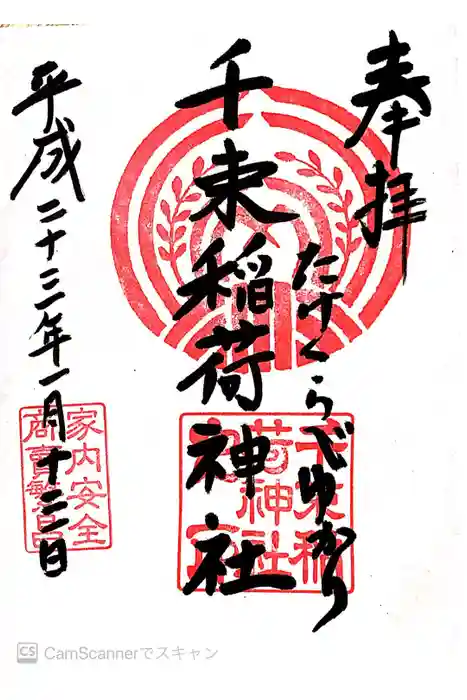 奉拝
たけくらべゆかり
千束稲荷神社
平成二十三年一月十三日
千束稲
荷神社
家内安全
商売繁昌
CS CamScannerでスキャン